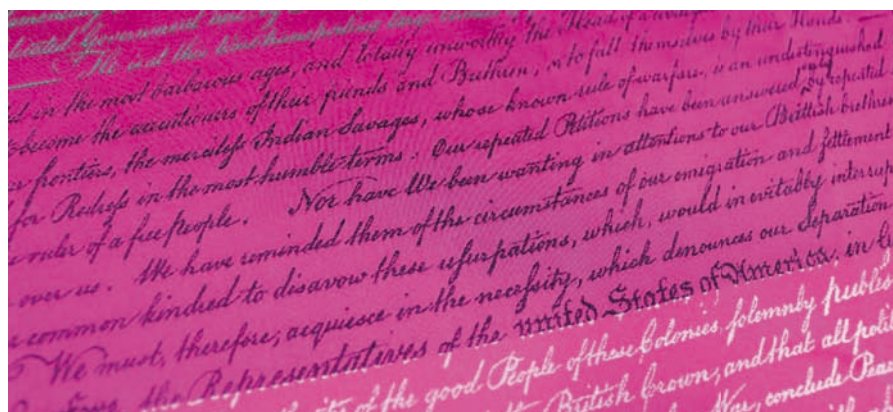 dicated Government and by
He is at this time transporting large
ed in the most barbarous ages, and totally unworthy the Head of a civilized
to become the executioners of their friends and Brethren, or to fall themselves by their Hands
frontiers, the merciless Indian Savages, whose known rule of warfare, is an undistinguished
for Redress in the most humble terms: Our repeated Petitions have been answered by repeated
ruler of a free people. Nor have We been wanting in attentions to our Brittish brethren
over us. We have reminded them of the circumstances of our emigration and settlement
common kindred to disavow these usurpations, which, would inevitably interrup
We must, therefore, acquiesce in the necessity, which denounces our Separation
the Representatives of the united States of America, in
of the good People of these Colonies, solemnly publish
British Crown, and that all poli
War, conclude Peac